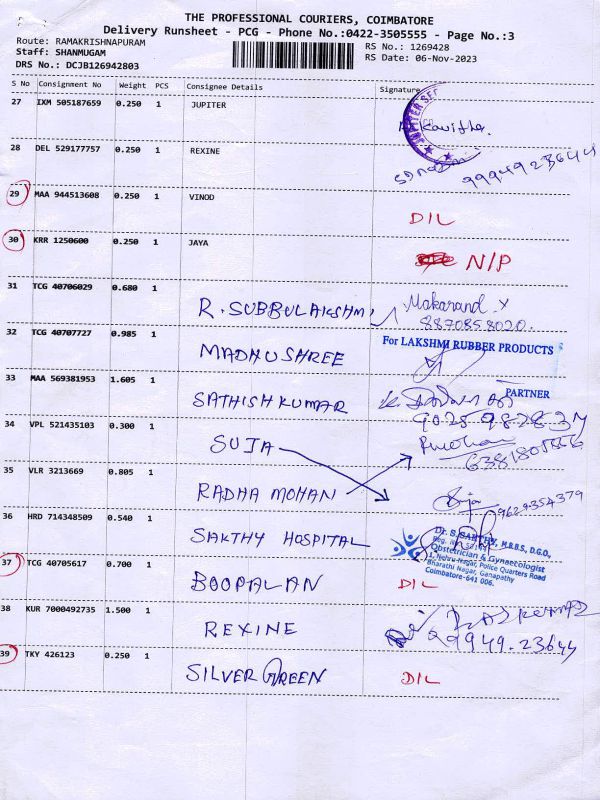 THE PROFESSIONAL COURIERS, COIMBATORE
Delivery Runsheet - PCG - Phone No.:0422-3505555 - Page No.:3
Route: RAMAKRISHNAPURAM
RS No.: 1269428
Staff: SHANMUGAM
RS Date: 06-Nov-2023
DRS No.: DCJB126942803
S No Consignment No Weight PCS Consignee Details Signature
27 IXM 505187659 0.250 1 JUPITER
JUPITER SER
Kavitha.
28 DEL 529177757 0.250 1 REXINE
9994923644
29 MAA 944513608 0.250 1 VINOD
D/L
30 KRR 1250600 0.250 1 JAYA
N/P
31 TCG 40706029 0.680 1 R. SUBBULAKSHMI Makarand
8870858020.
32 TCG 40707727 0.985 1 MADHUSHREE
For LAKSHMI RUBBER PRODUCTS
PARTNER
33 MAA 569381953 1.605 1 SATHISH KUMAR
34 VPL 521435103 0.300 1 SUJA
35 VLR 3213669 0.805 1 RADHA MOHAN
9629354379
36 HRD 714348509 0.540 1 SAKTHY HOSPITAL
Dr. S. SAKTHY, M.B.B.S, D.G.O.,
Obstetrician & Gynaecologist
1, Nehru Nagar, Police Quarters Road
Bharathi Nagar, Ganapathy
Coimbatore-641 006.
37 TCG 40705617 0.700 1 BOOPALAN D/L
38 KUR 7000492735 1.500 1 REXINE
99949.23644
39 TKY 426123 0.250 1 SILVER GREEN D/L